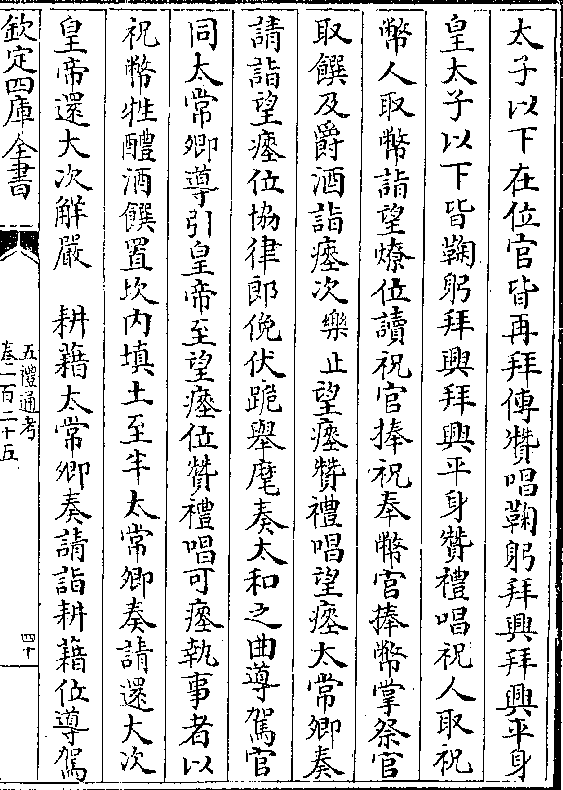 太子以下在位官皆再拜傳贊唱鞠躬拜興拜興平身
皇太子以下皆鞠躬拜興拜興平身贊禮唱祝人取祝
幣人取幣詣望燎位讀祝官捧祝奉幣官捧幣掌祭官
取饌及爵酒詣瘞次樂止望瘞贊禮唱望瘞太常卿奏
請詣望瘞位協律郎俛伏跪舉麾奏太和之曲導駕官
同太常卿導引皇帝至望瘞位贊禮唱可瘞執事者以
祝幣牲醴酒饌置坎内填土至半太常卿奏請還大次
皇帝還大次解嚴 耕藉太常卿奏請詣耕藉位導駕
欽定四庫全書
五禮通考
卷一百二十五
四十